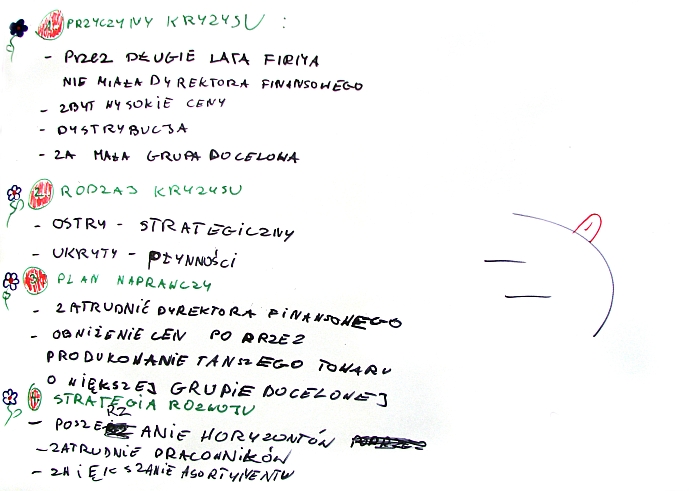 1. PRZYCZYNY KRYZYSU :
- PRZEZ DŁUGIE LATA FIRMA
NIE MIAŁA DYREKTORA FINANSOWEGO
- ZBYT WYSOKIE CENY
- DYSTRYBUCJA
- ZA MAŁA GRUPA DOCELOWA
2. RODZAJ KRYZYSU
- OSTRY - STRATEGICZNY
- UKRYTY - PŁYNNOŚCI
3 PLAN NAPRAWCZY
- ZATRUDNIĆ DYREKTORA FINANSOWEGO
- OBNIŻENIE CEN PO PRZEZ
PRODUKOWANIE TAŃSZEGO TOWARU
O WIĘKSZEJ GRUPIE DOCELOWEJ
4 STRATEGIA ROZWOJU
- POSZERZANIE HORYZONTÓW
- ZATRUDNIE PRACOWNIKÓW
- ZWIĘKSZANIE ASORTYMENTU